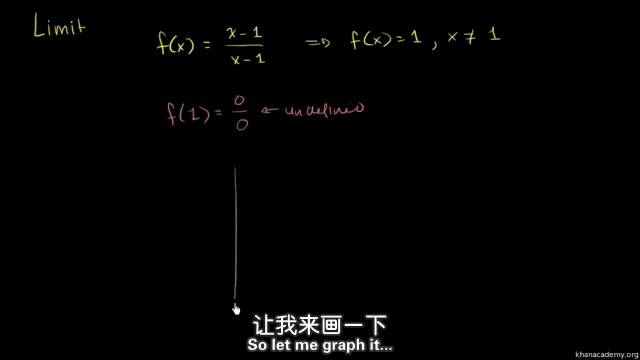 Limit
f(x) = x-1/x-1 ⇒ f(x) = 1 , x ≠ 1
f(1) = 0/0 ← undefined
让我来画一下
So let me graph it...
khanacademy.org